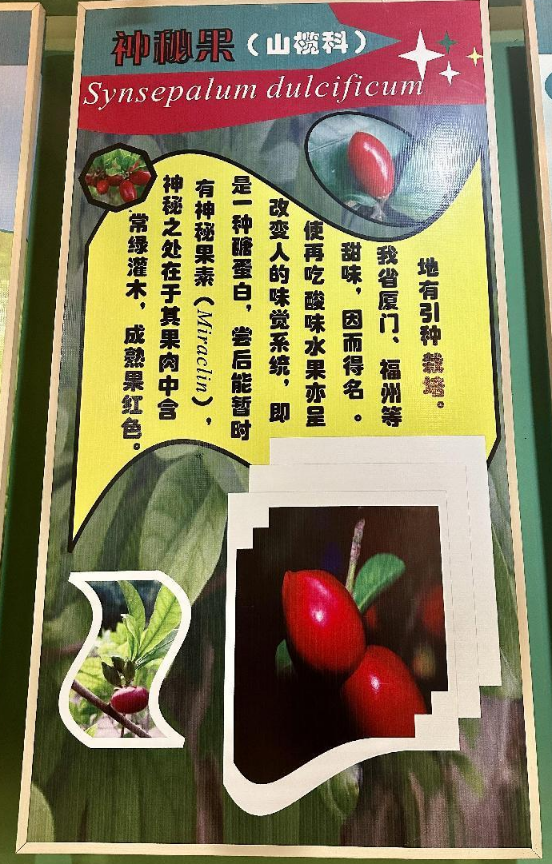 神秘果（山榄科）
Synsepalum dulcificum
常绿灌木，成熟果红色。
神秘之处在于其果肉中含
有神秘果素（Miraclin），
是一种醣蛋白，尝后能暂时
改变人的味觉系统，即
使再吃酸味水果亦呈
甜味，因而得名。
我省厦门、福州等
地有引种栽培。